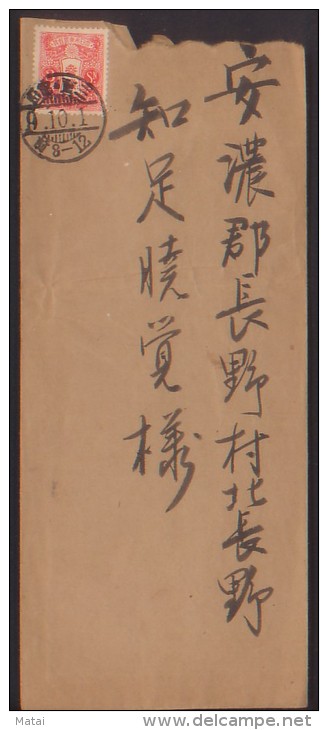 安濃郡長野村北長野
知足暁覚様
9.10.1
8-12
Matai
www.delcampe.net